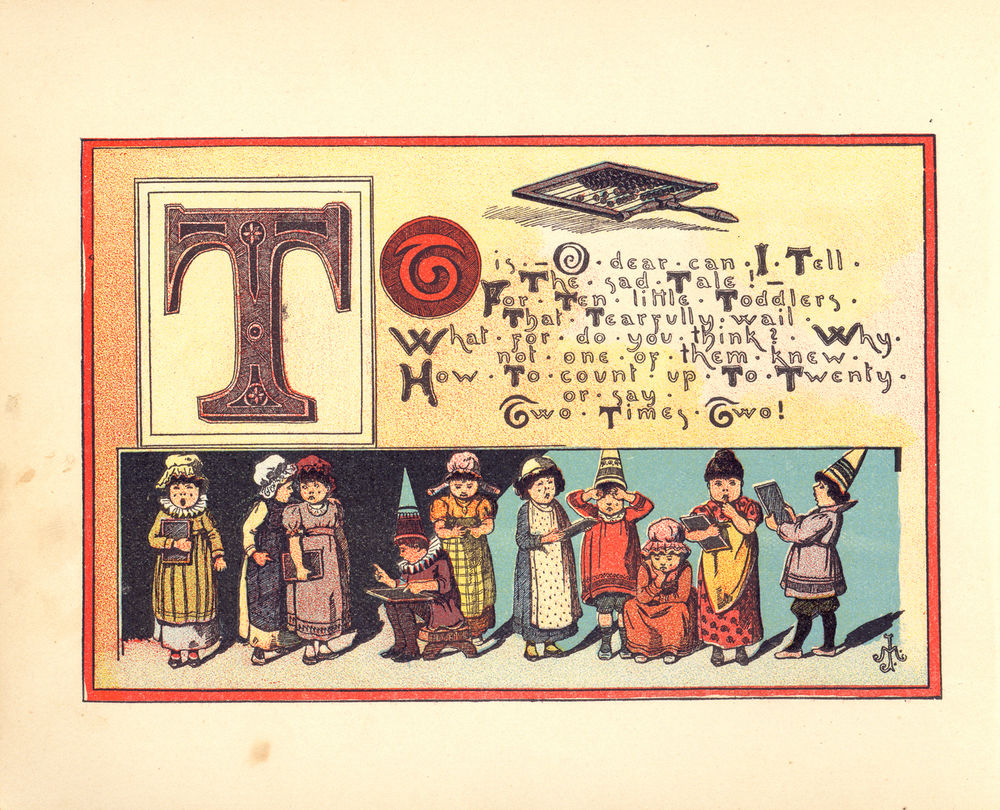 T
T · is · — O · dear · can · I · Tell ·
The · sad · Tale ! —
For · Ten · little · Toddlers ·
That · Tearfully · wail ·
What · for · do · you · think ? · Why ·
not · one · of · them · knew ·
How · To · count · up · To · Twenty ·
or · say ·
Two · Times · Two !